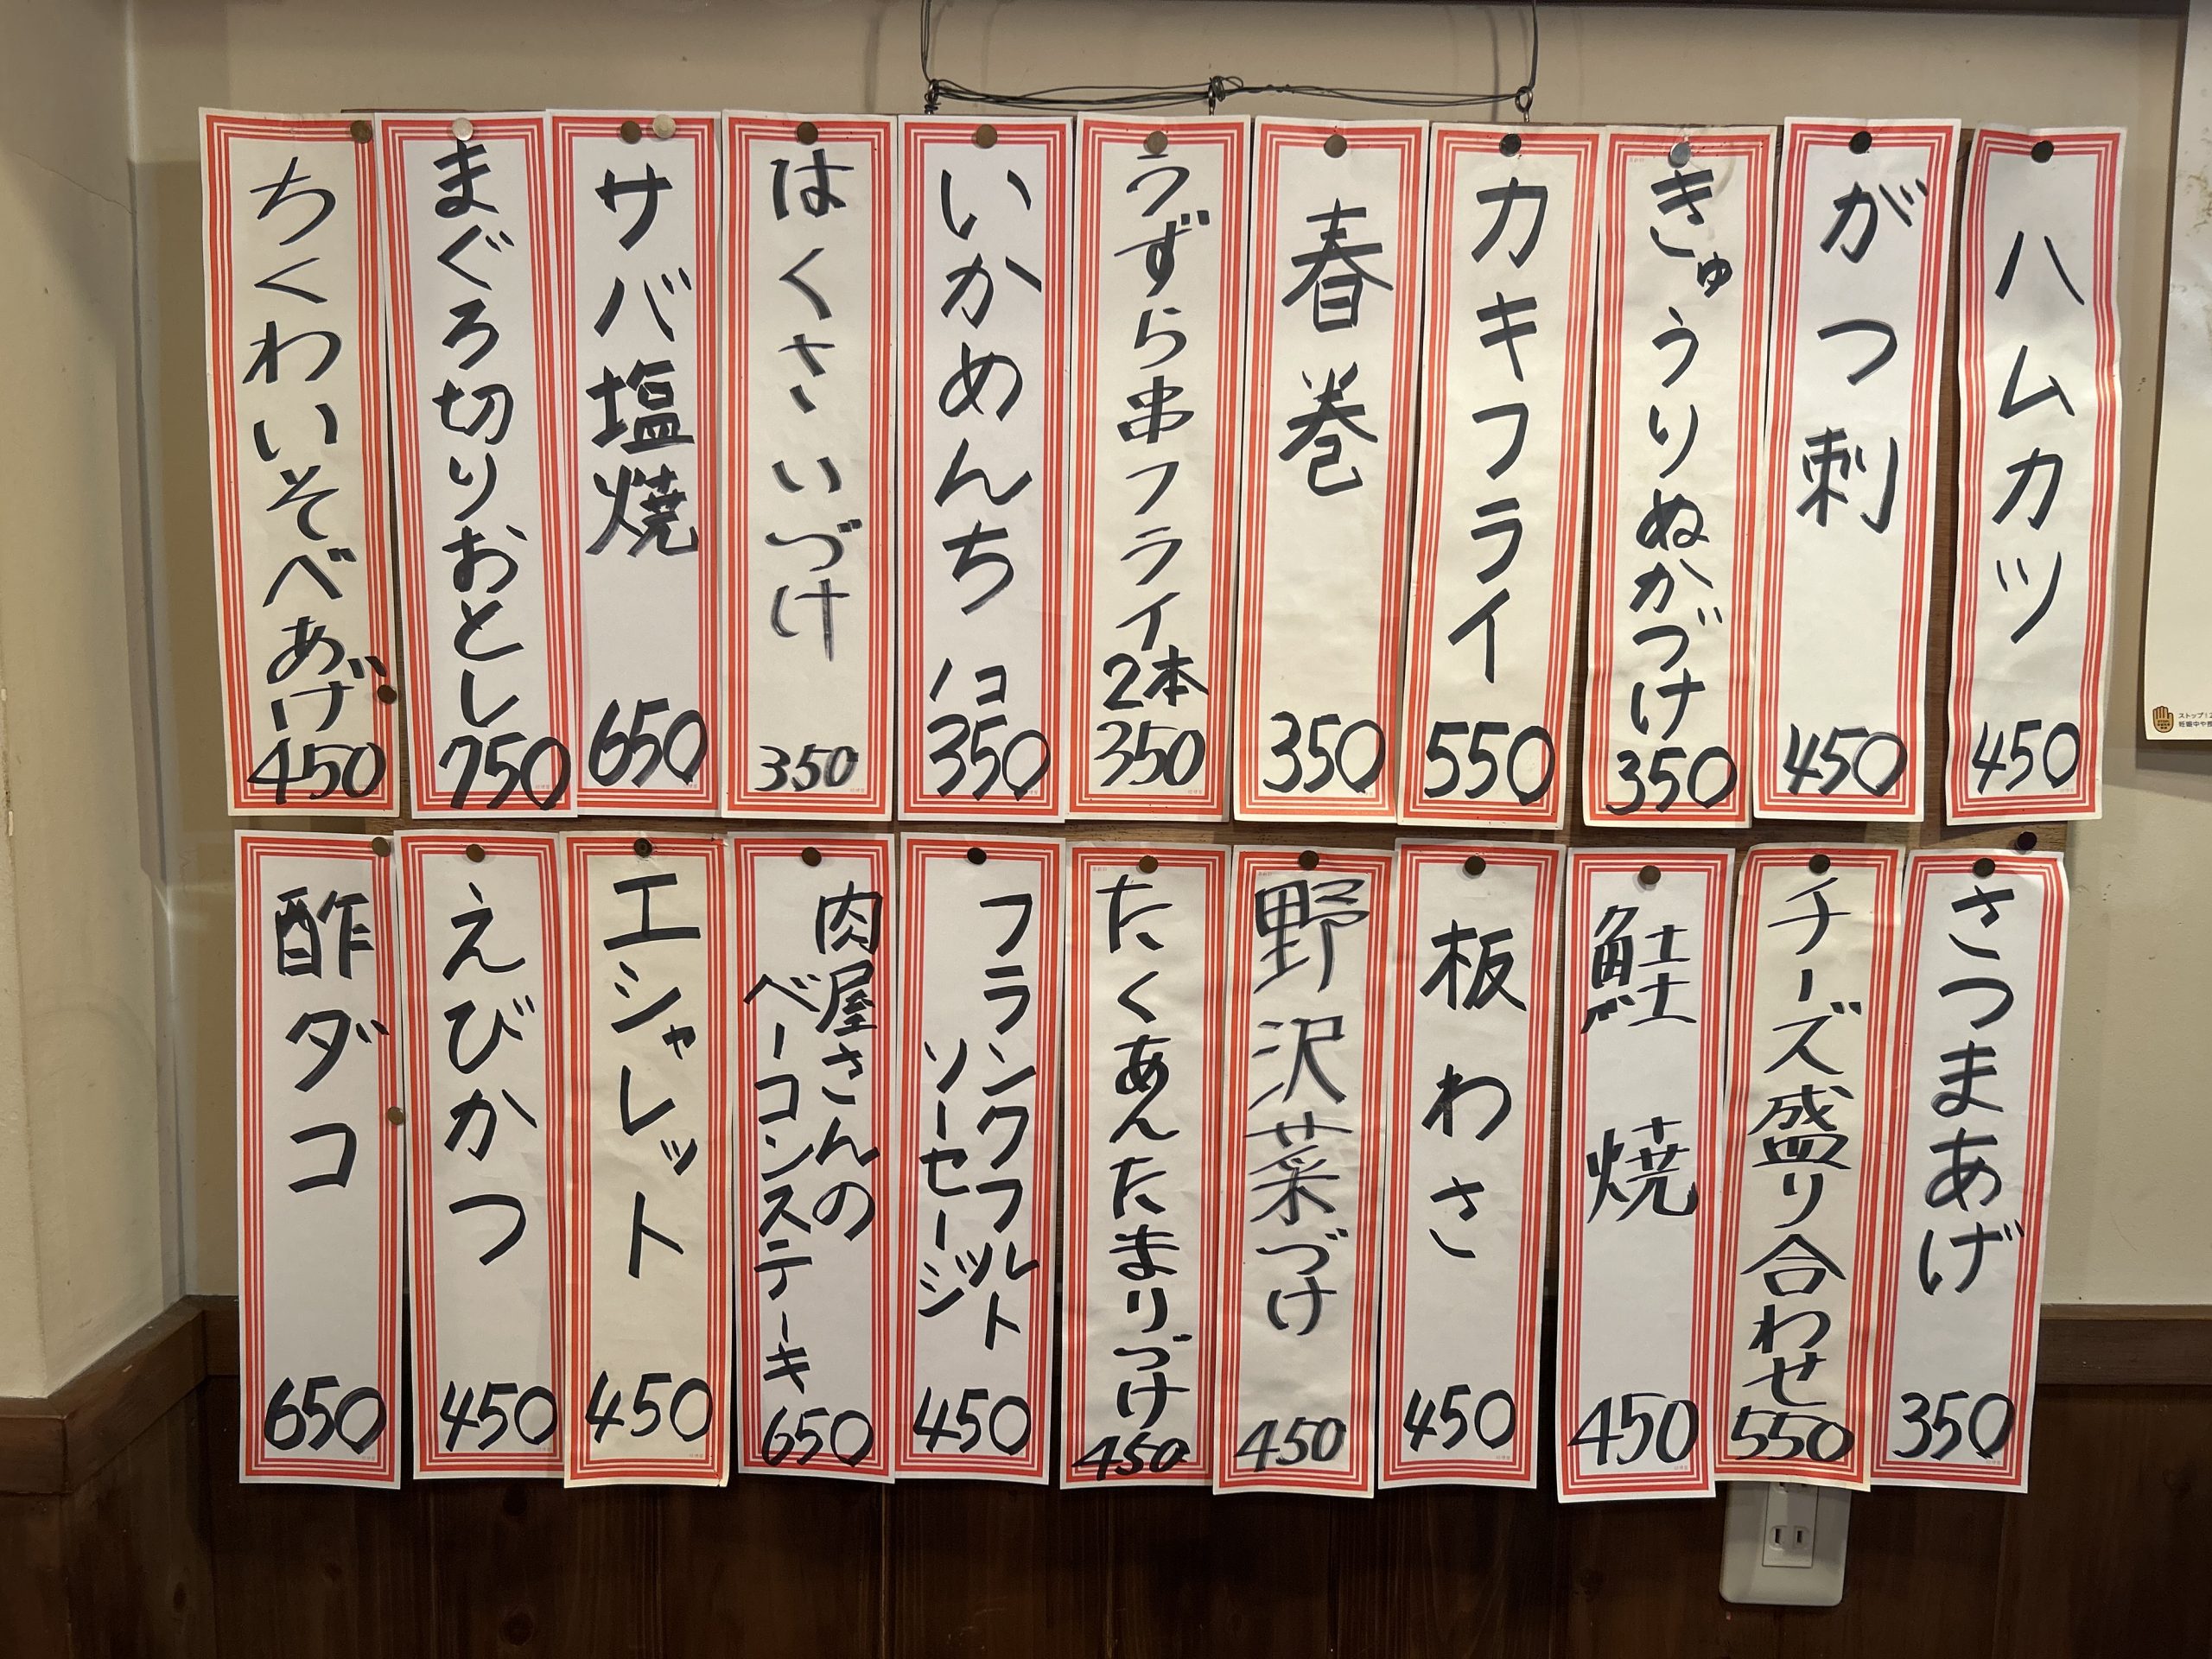 ハムカツ
450
がつ刺
450
きゅうりぬかづけ
350
カキフライ
550
春巻
350
うずら串フライ
2本
350
いかめんち
1コ
350
はくさいづけ
350
サバ塩焼
650
まぐろ切りおとし
750
ちくわいそべあげ
450
さつまあげ
350
チーズ盛り合わせ
550
鮭焼
450
板わさ
450
野沢菜づけ
450
たくあんたまりづけ
450
フランクフルト
ソーセージ
450
肉屋さんの
ベーコンステーキ
650
エシャレット
450
えびかつ
450
酢ダコ
650
ストップ!
妊娠中や